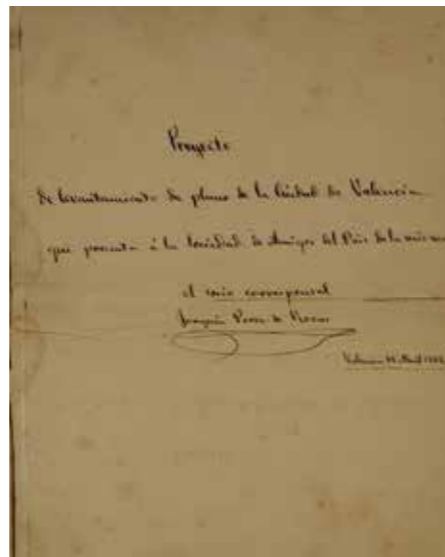 Proyecto
de levantamiento de plano de la Ciudad de Valencia
que presenta á la Sociedad de Amigos del Pais de la misma
el socio corresponsal
Joaquin Perez de Rozas
Valencia Abril